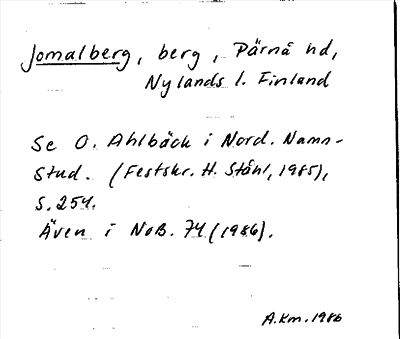 Jomalberg, berg, Pärnå hd,
Nylands l. Finland
Se O. Ahlbäck i Nord. Namn-
Stud. (Festskr. H. Ståhl, 1985),
s. 254.
Även i NoB. 74 (1986).
A.Km. 1986